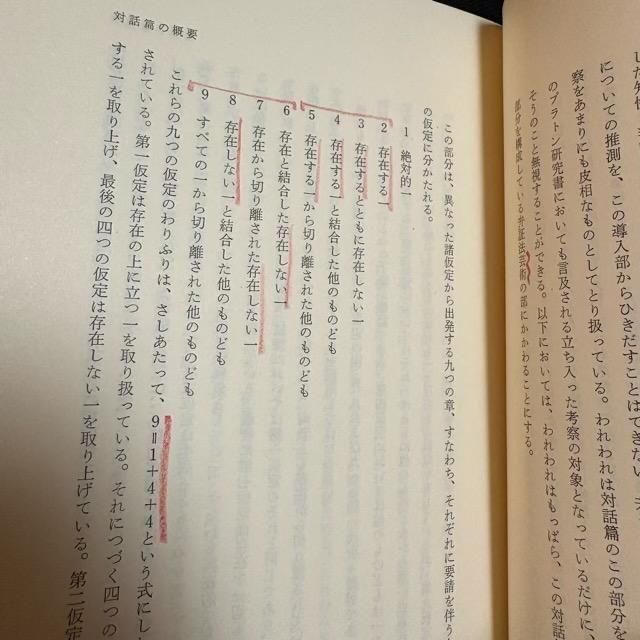 についての推測を、この導入部からひきだすことはできない
察をあまりにも皮相なものとしてとり扱っている。われわれは対話篇のこの部分を
のプラトン研究書においても言及される立ち入った考察の対象となっているだけに、
そうのこと無視することができる。以下においては、われわれはもっぱら、この対話
部分を構成している弁証法芸術の部にかかわることにする。
対話篇の概要
この部分は、異なった諸仮定から出発する九つの章、すなわち、それぞれに要請を伴う
の仮定に分かたれる。
1 絶対的一
2 存在する一
3 存在するとともに存在しない一
4 存在する一と結合した他のものども
5 存在する一から切り離された他のものども
6 存在と結合した存在しない一
7 存在から切り離された存在しない一
8 存在しない一と結合した他のものども
9 すべての一から切り離された他のものども
これらの九つの仮定のわりふりは、さしあたって、9＝1＋4＋4という式にし
されている。第一仮定は存在の上に立つ一を取り扱っている。それにつづく四つの
する一を取り上げ、最後の四つの仮定は存在しない一を取り上げている。第二仮定